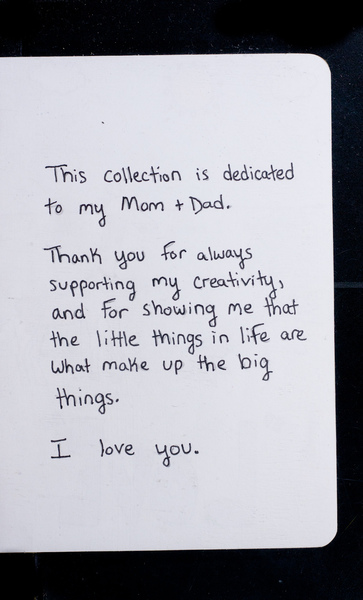 This collection is dedicated
to my Mom + Dad.
Thank you for always
supporting my creativity,
and for showing me that
the little things in life are
what make up the big
things.
I love you.